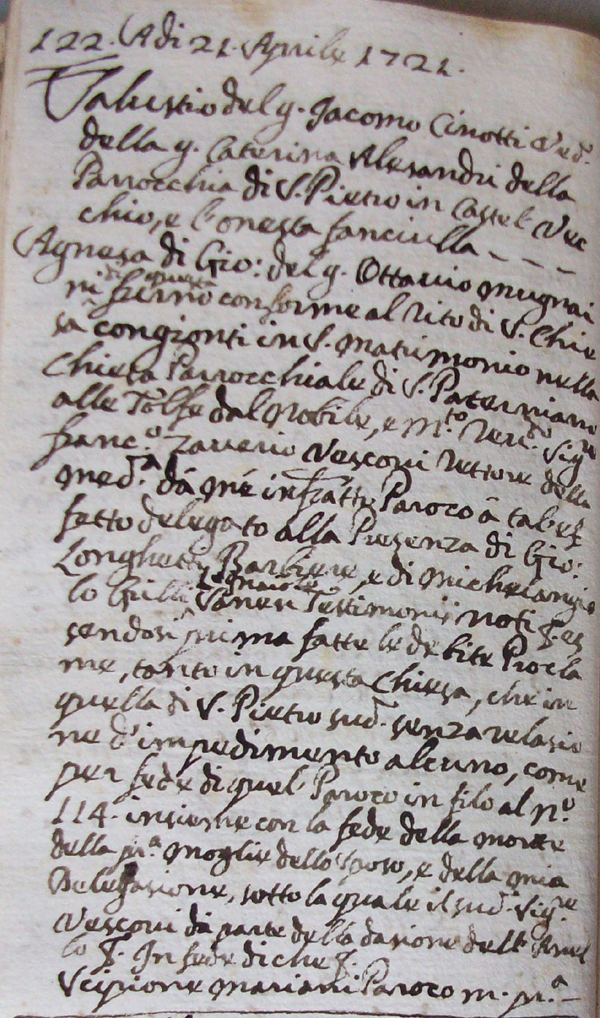 122. A di 21. Aprile 1721.
Salustio del q. Jacomo Cinotti Ved.
della q. Caterina Alesandri della
Parrocchia di S. Pietro in Castel Vec
chio, e l'onesta fanciulla - - -
Agnesa di Gio: del q. Ottavio Mugnai
ni di questa furno conforme al rito di S. Chie
sa congionti in S. Matrimonio nella
Chiesa Parrocchiale di S. Paterniano
alle Tolfe dal Nobile, e M.to Ren.do Sig.re
Franc.o Zaverio Vesconi Rettore della
med.a da me infratto Paroco a tal ef
fatto delegato alla Presenza di Gio:
Longhetti Barbiere, e di Michelangio
lo Legnaiolo Vaneri Testimonii noti P. es
sendosi prima fatte le debite Procla
me, tanto in questa Chiesa, che in
quella di S. Pietro sud. senza relasio
ne d'impedimento alcuno, come
per fede di quel Paroco in filo al n.o
114. insieme con la fede della morte
della pr.a moglie dello sposo, e della mia
Delegasione, sotto la quale il sud. Sig.re
Vesconi da parte della dasione dell'Anel
lo P. In fede di che P.
Scipione Mariani Paroco m. pr.a